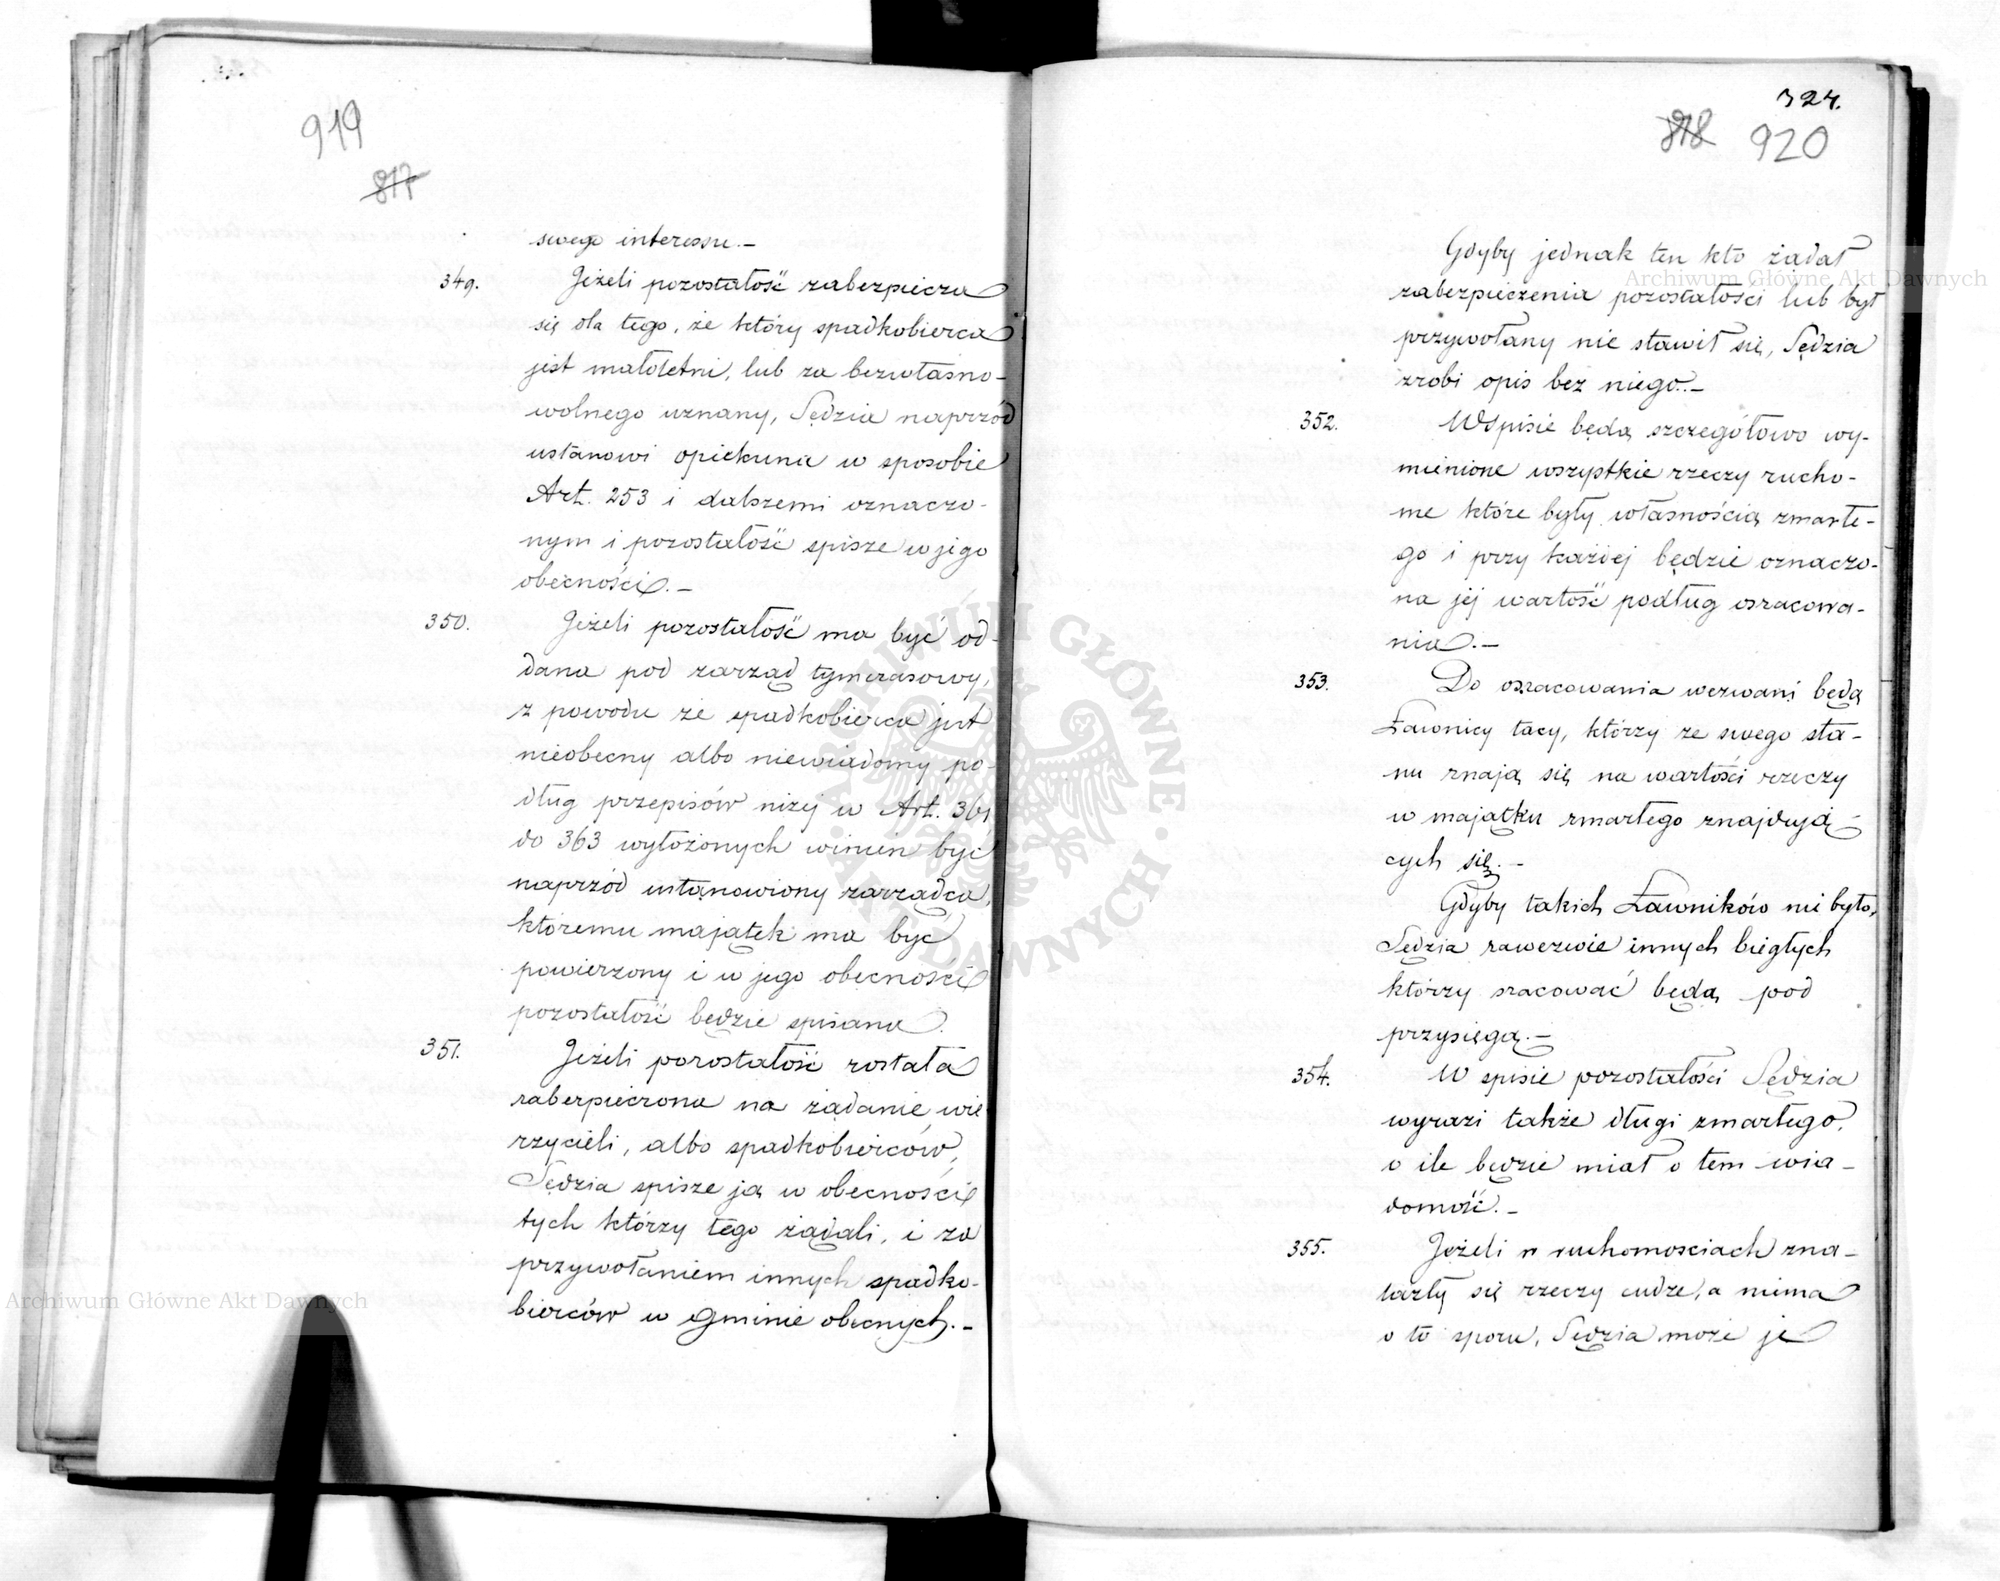 919
817
swego interessu.—
349. Jeżeli pozostałość zabezpiecza
się dla tego, że który spadkobierca
jest małoletni, lub za bezwłasno-
wolnego uznany, Sędzia naprzód
ustanowi opiekuna w sposobie
Art. 253 i dalszemi oznaczo-
nym i pozostałość spisze w jego
obecności.—
350. Jeżeli pozostałość ma być od-
dana pod zarząd tymczasowy,
z powodu że spadkobierca jest
nieobecny albo niewiadomy po-
dług przepisów niżej w Art. 361
do 363 wyłożonych winien być
naprzód ustanowiony zarządca,
któremu majątek ma być
powierzony i w jego obecności
pozostałość będzie spisana.
351. Jeżeli pozostałość została
zabezpieczona na żądanie wie-
rzycieli, albo spadkobierców,
Sędzia spisze ją w obecności
tych którzy tego żądali, i za
przywołaniem innych spadko-
bierców w Gminie obecnych.—
324.
818 920
Gdyby jednak ten kto żądał
zabezpieczenia pozostałości lub był
przywołany nie stawił się, Sędzia
zrobi opis bez niego.—
352. W spisie będą szczegółowo wy-
mienione wszystkie rzeczy rucho-
me które były własnością zmarłe-
go i przy każdej będzie oznaczo-
na jej wartość podług oszacowa-
nia.—
353. Do oszacowania wezwani będą
Ławnicy tacy, którzy ze swego sta-
nu znają się na wartości rzeczy
w majątku zmarłego znajdują-
cych się.—
Gdyby takich Ławników nie było,
Sędzia zawezwie innych biegłych
którzy szacować będą pod
przysięgą.—
354. W spisie pozostałości Sędzia
wyrazi także długi zmarłego,
o ile będzie miał o tem wia-
domość.—
355. Jeżeli w ruchomosciach zna-
lazły się rzeczy cudze, a niema
o to sporu, Sędzia może je
Archiwum Główne Akt Dawnych
Archiwum Główne Akt Dawnych
ARCHIWUM GŁÓWNE AKT DAWNYCH